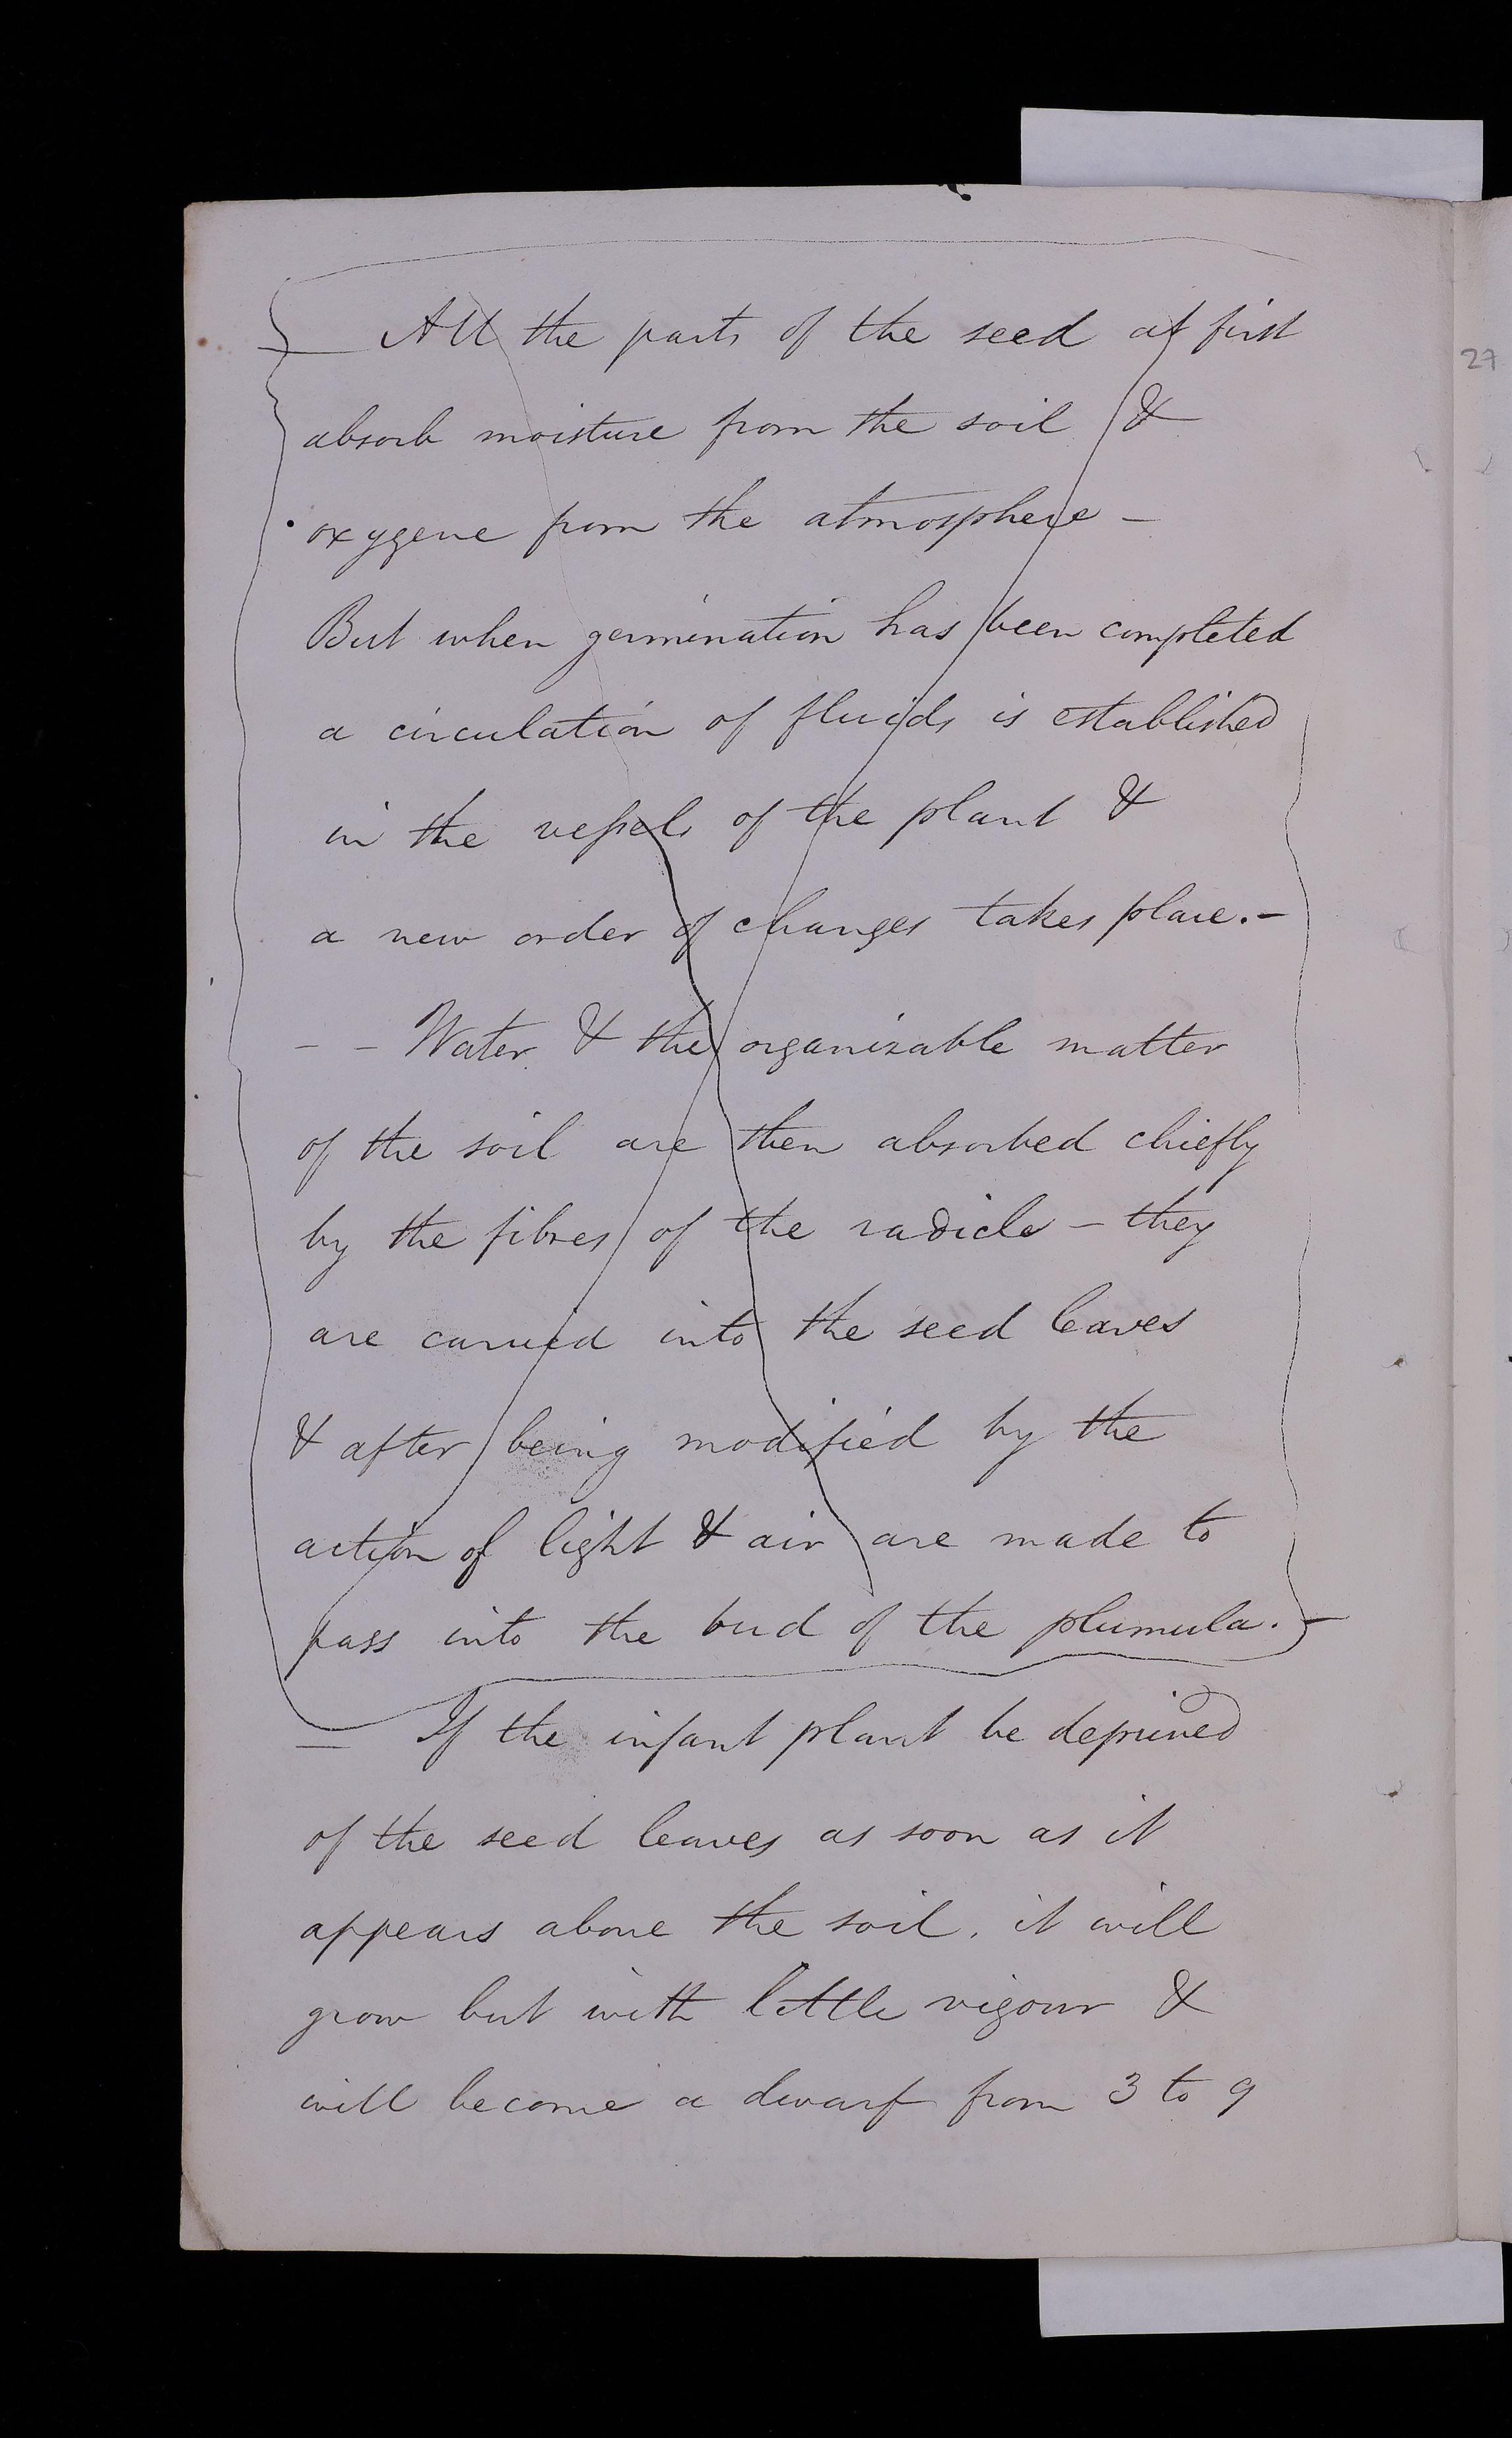 All the parts of the seed at first
absorb moisture from the soil &
oxygene from the atmosphere –
But when germination has been completed
a circulation of fluids is established
in the vessels of the plant &
a new order of changes takes place. –
– – Water & the organizable matter
of the soil are then absorbed chiefly
by the fibres of the radicle – they
are carried into the seed leaves
& after being modified by the
action of light & air are made to
pass into the bud of the plumula. –
— If the infant plant be deprived
of the seed leaves as soon as it
appears above the soil. it will
grow but with little vigour &
will become a dwarf from 3 to 9
27